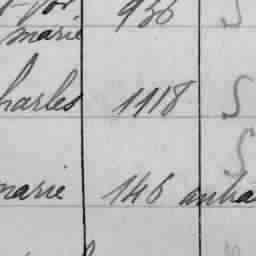 936 S
marie
harles 1118 S
S
marie 146 anha